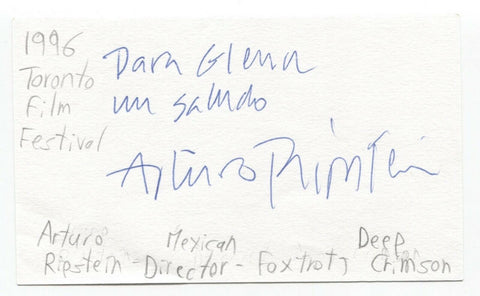 1996
Toronto
Film
Festival
Para Glenn
un saludo
Arturo Ripstein
Arturo Mexican Deep
Ripstein - Director - Foxtrot, Crimson